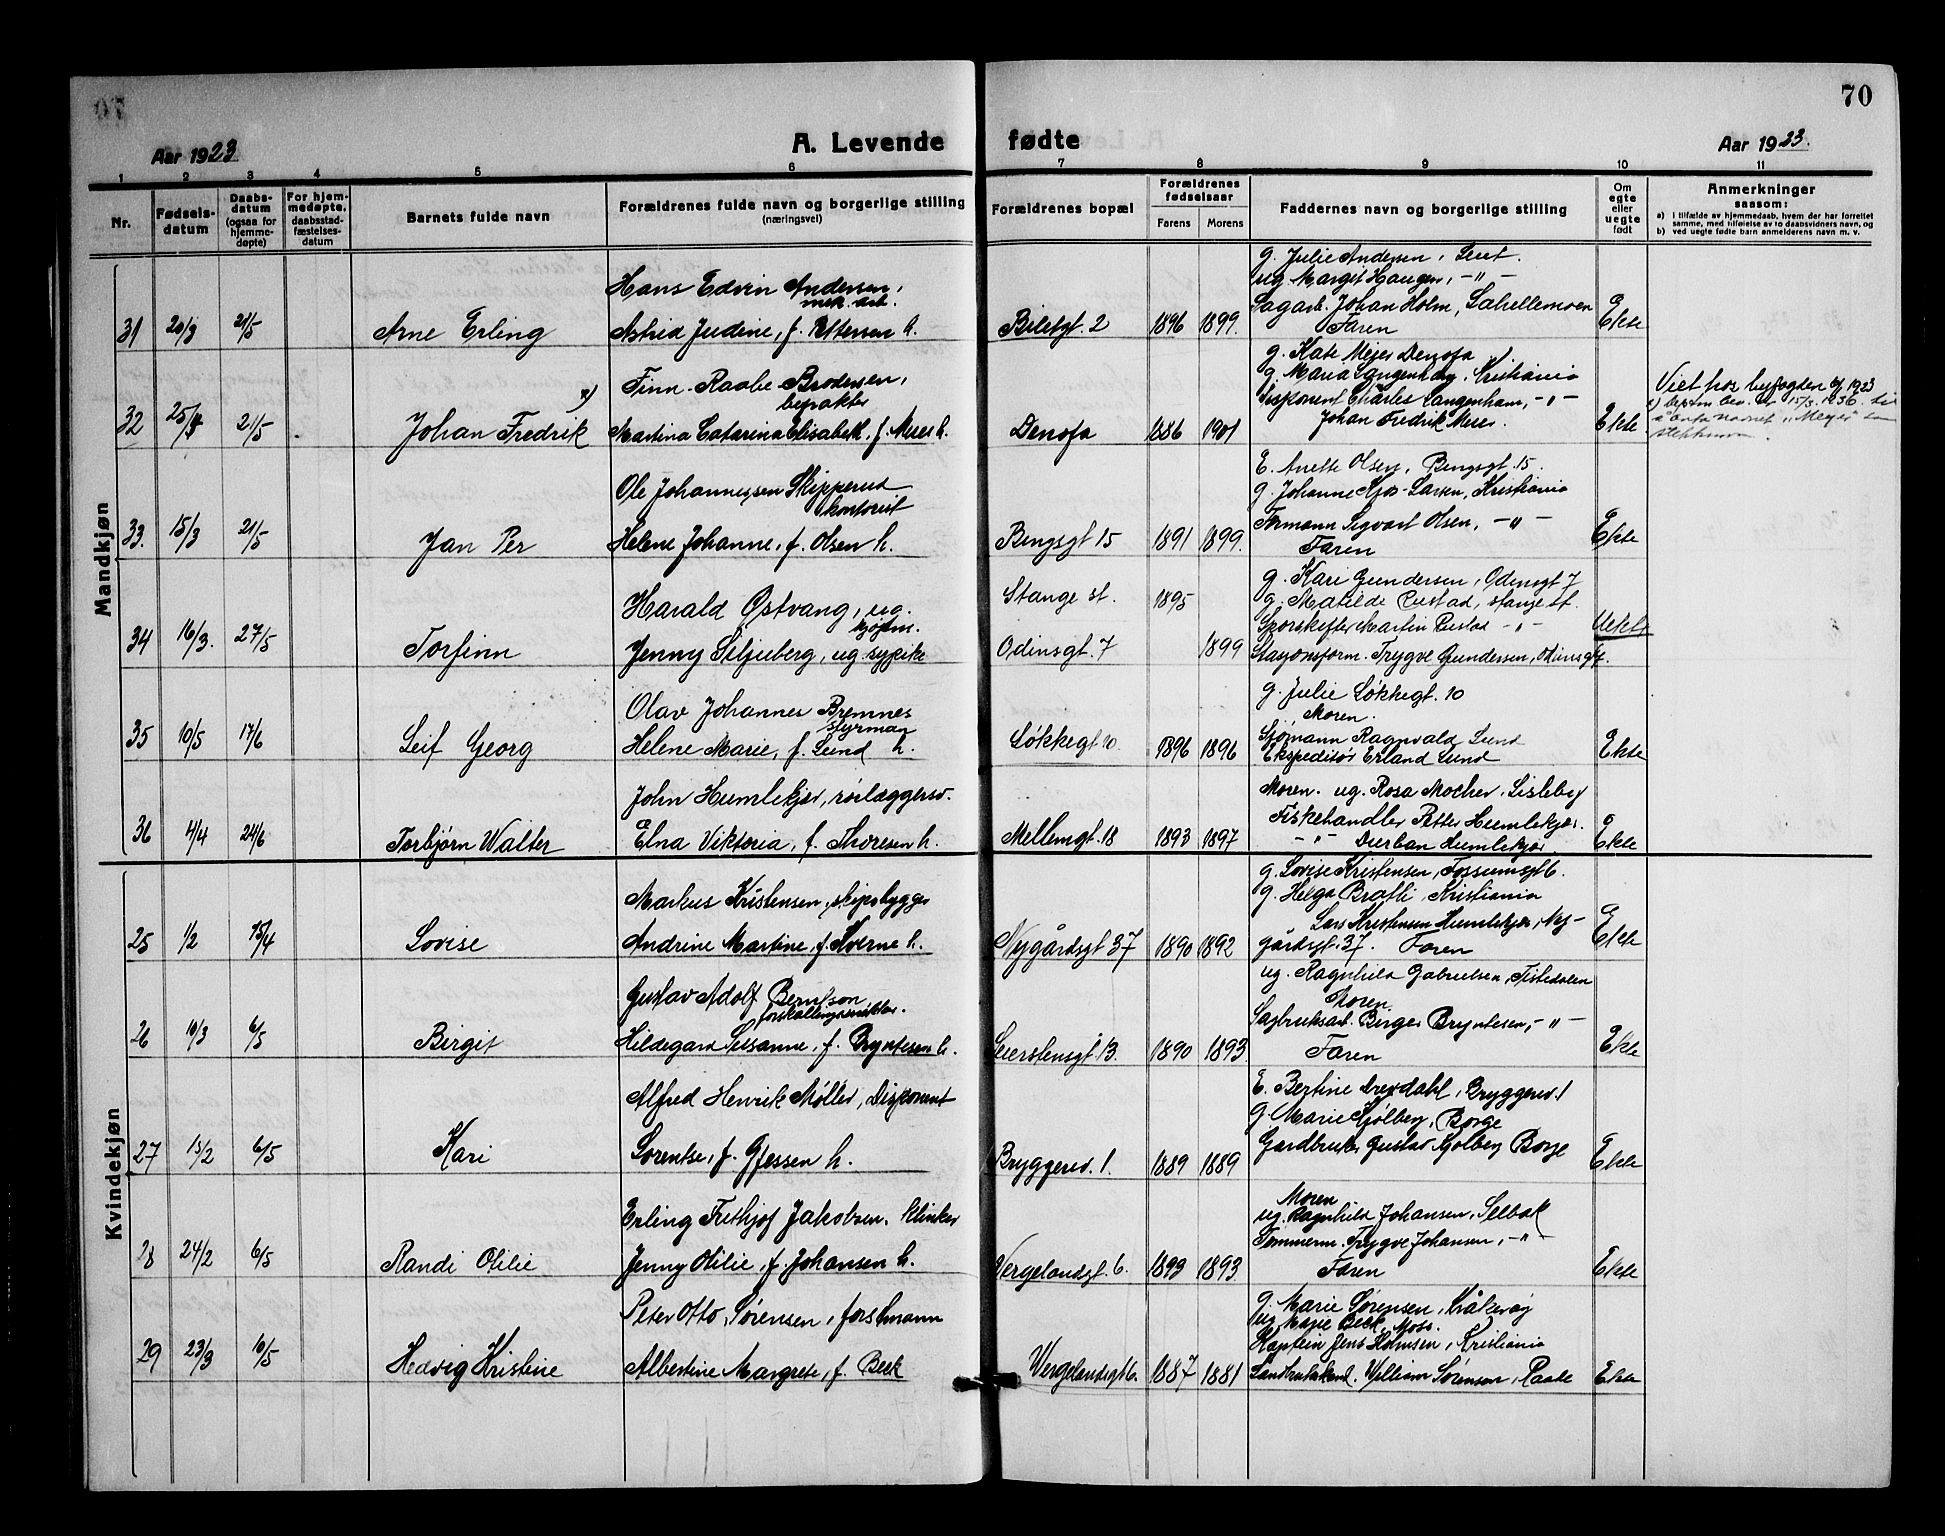 70
Aar 1923
A. Levende fødte
Aar 1923.
1 2 3 4 5 6 7 8 9 10 11
Nr.
Fødselsdatum
Daabsdatum (ogsaa for hjemmedøpte)
For hjemmedøpte, daabsstadfæstelsesdatum
Barnets fulde navn
Forældrenes fulde navn og borgerlige stilling (næringsvei)
Forældrenes bopæl
Forældrenes fødselsaar
Farens Morens
Faddernes navn og borgerlige stilling
Om egte eller uegte født
Anmerkninger saasom:
a) I tilfælde av hjemmedaab, hvem der har forrettet samme, med tilføielse av to daabsvidners navn, og
b) ved uegte fødte barn anmelderens navn m. v.
Mandkjøn
31 20/3 21/5 Arne Erling
Hans Edvin Andersen, mek. arb.
Astrid Judine, f. Pettersen h.
Biletgt. 2 1896 1899.
g. Julie Andersen,
ug. Margit Haugen, -"-
Sagarb. Johan Holm,
Faren
Ekte
32 21/5 Johan Fredrik x)
Finn Raabe Brodersen,
Martina Catarina Elisabeth, f. Meier h.
Denofa 1886 1901
g. Kate Meier Denofa
g. Maria Langenham, Kristiania
Disponent Charles Langenham, -"-
Johan Fredrik Meier.
Ekte
Viet hos byfogden 1923
x) 15/3. 1936. til
å anta navnet "Meyer" som
slektsnavn.
33. 15/3 21/5 Jan Per
Ole Johannessen Skipperud
kontorist
Helene Johanne, f. Olsen h.
Bingsgt 15 1891 1899.
E. Anette Olsen, Bingsgt. 15.
g. Johanne Kjos-Larsen, Kristiania
Formann Sigvart Olsen, -"-
Faren
Ekte
34 16/3. 27/5 Torfinn
Harald Østvang, ug.
Jenny Siljuberg, ug sypike
Stange st. 1895
Odinsgt. 7 1899
g. Kari Gundersen, Odinsgt 7
g. Matilde Rustad, Stange st.
Sporskifter Martin Rustad -"-
Stasjonsform. Trygve Gundersen,
Uekte
35 10/5 17/6 Leif Georg
Olav Johannes Bremnes
styrman
Helene Marie, f. Lund h.
Løkkegt 10. 1896 1896
g. Julie Løkkegt. 10
Moren.
Sjømann Ragnvald Lund
Ekspeditør Erland Lund
Ekte
36 4/4 24/6 Torbjørn Walter
John Humlekjær, rørlæggersv.
Elna Viktoria, f. Thoresen h.
Mellemgt. 18 1893 1897
Moren. ug. Rosa Mocher, Lisleby
Fiskehandler Petter Humlekjær.
-"- Durban Humlekjær
Ekte
Kvindekjøn
25 1/2 15/4 Lovise
Markus Kristensen, skipsbygger
Andrine Martine, f. Kverne h.
Nygårdsgt 37 1890 1892
g. Lovise Kristensen, Fossumsgt 6.
g. Helga Bratli, Kristiania
Lars Kristensen Humlekjær, Nygårdsgt. 37. Faren
Ekte
26 10/3 6/5 Birgit
Gustav Adolf Berntson
Hildegard Susanne, f. Bryntesen h.
Seierstensgt. 13. 1890 1893.
ug. Ragnhild Gabrielsen, Tistedalen
Moren
Sagbruksarb. Birger Bryntesen, -"-
Faren
Ekte
27 13/2 6/5 Kari
Alfred Henrik Møller, Disponent
Sorentse, f. Gjessen h.
Bryggeriv. 1. 1889 1889
E. Bertine Drevdahl, Bryggeriv. 1
g. Marie Kjølberg, Borge
Gardbruker Gustav Kjølberg Borge
Ekte
28 24/2 6/5 Randi Otilie
Erling Fritjof Jakobsen, klinker
Jenny Otilie, f. Johansen h.
Vergelandsgt. 6. 1893 1893
Moren
ug. Ragnhild Johansen, Selbak
Tømmerm. Trygve Johansen, -"-
Faren
Ekte
29 23/3 10/5 Hedvig Kristine
Peter Otto Sørensen, forstmann
Albertine Margrete, f. Beck
Vergelandsgt 6. 1887 1881
g. Marie Sørensen, Kråkerøy
ug. Marie Beck, Moss.
Kaptein Jens Holmsen, Kristiania
Landbrukskand. William Sørensen, Raade
Ekte